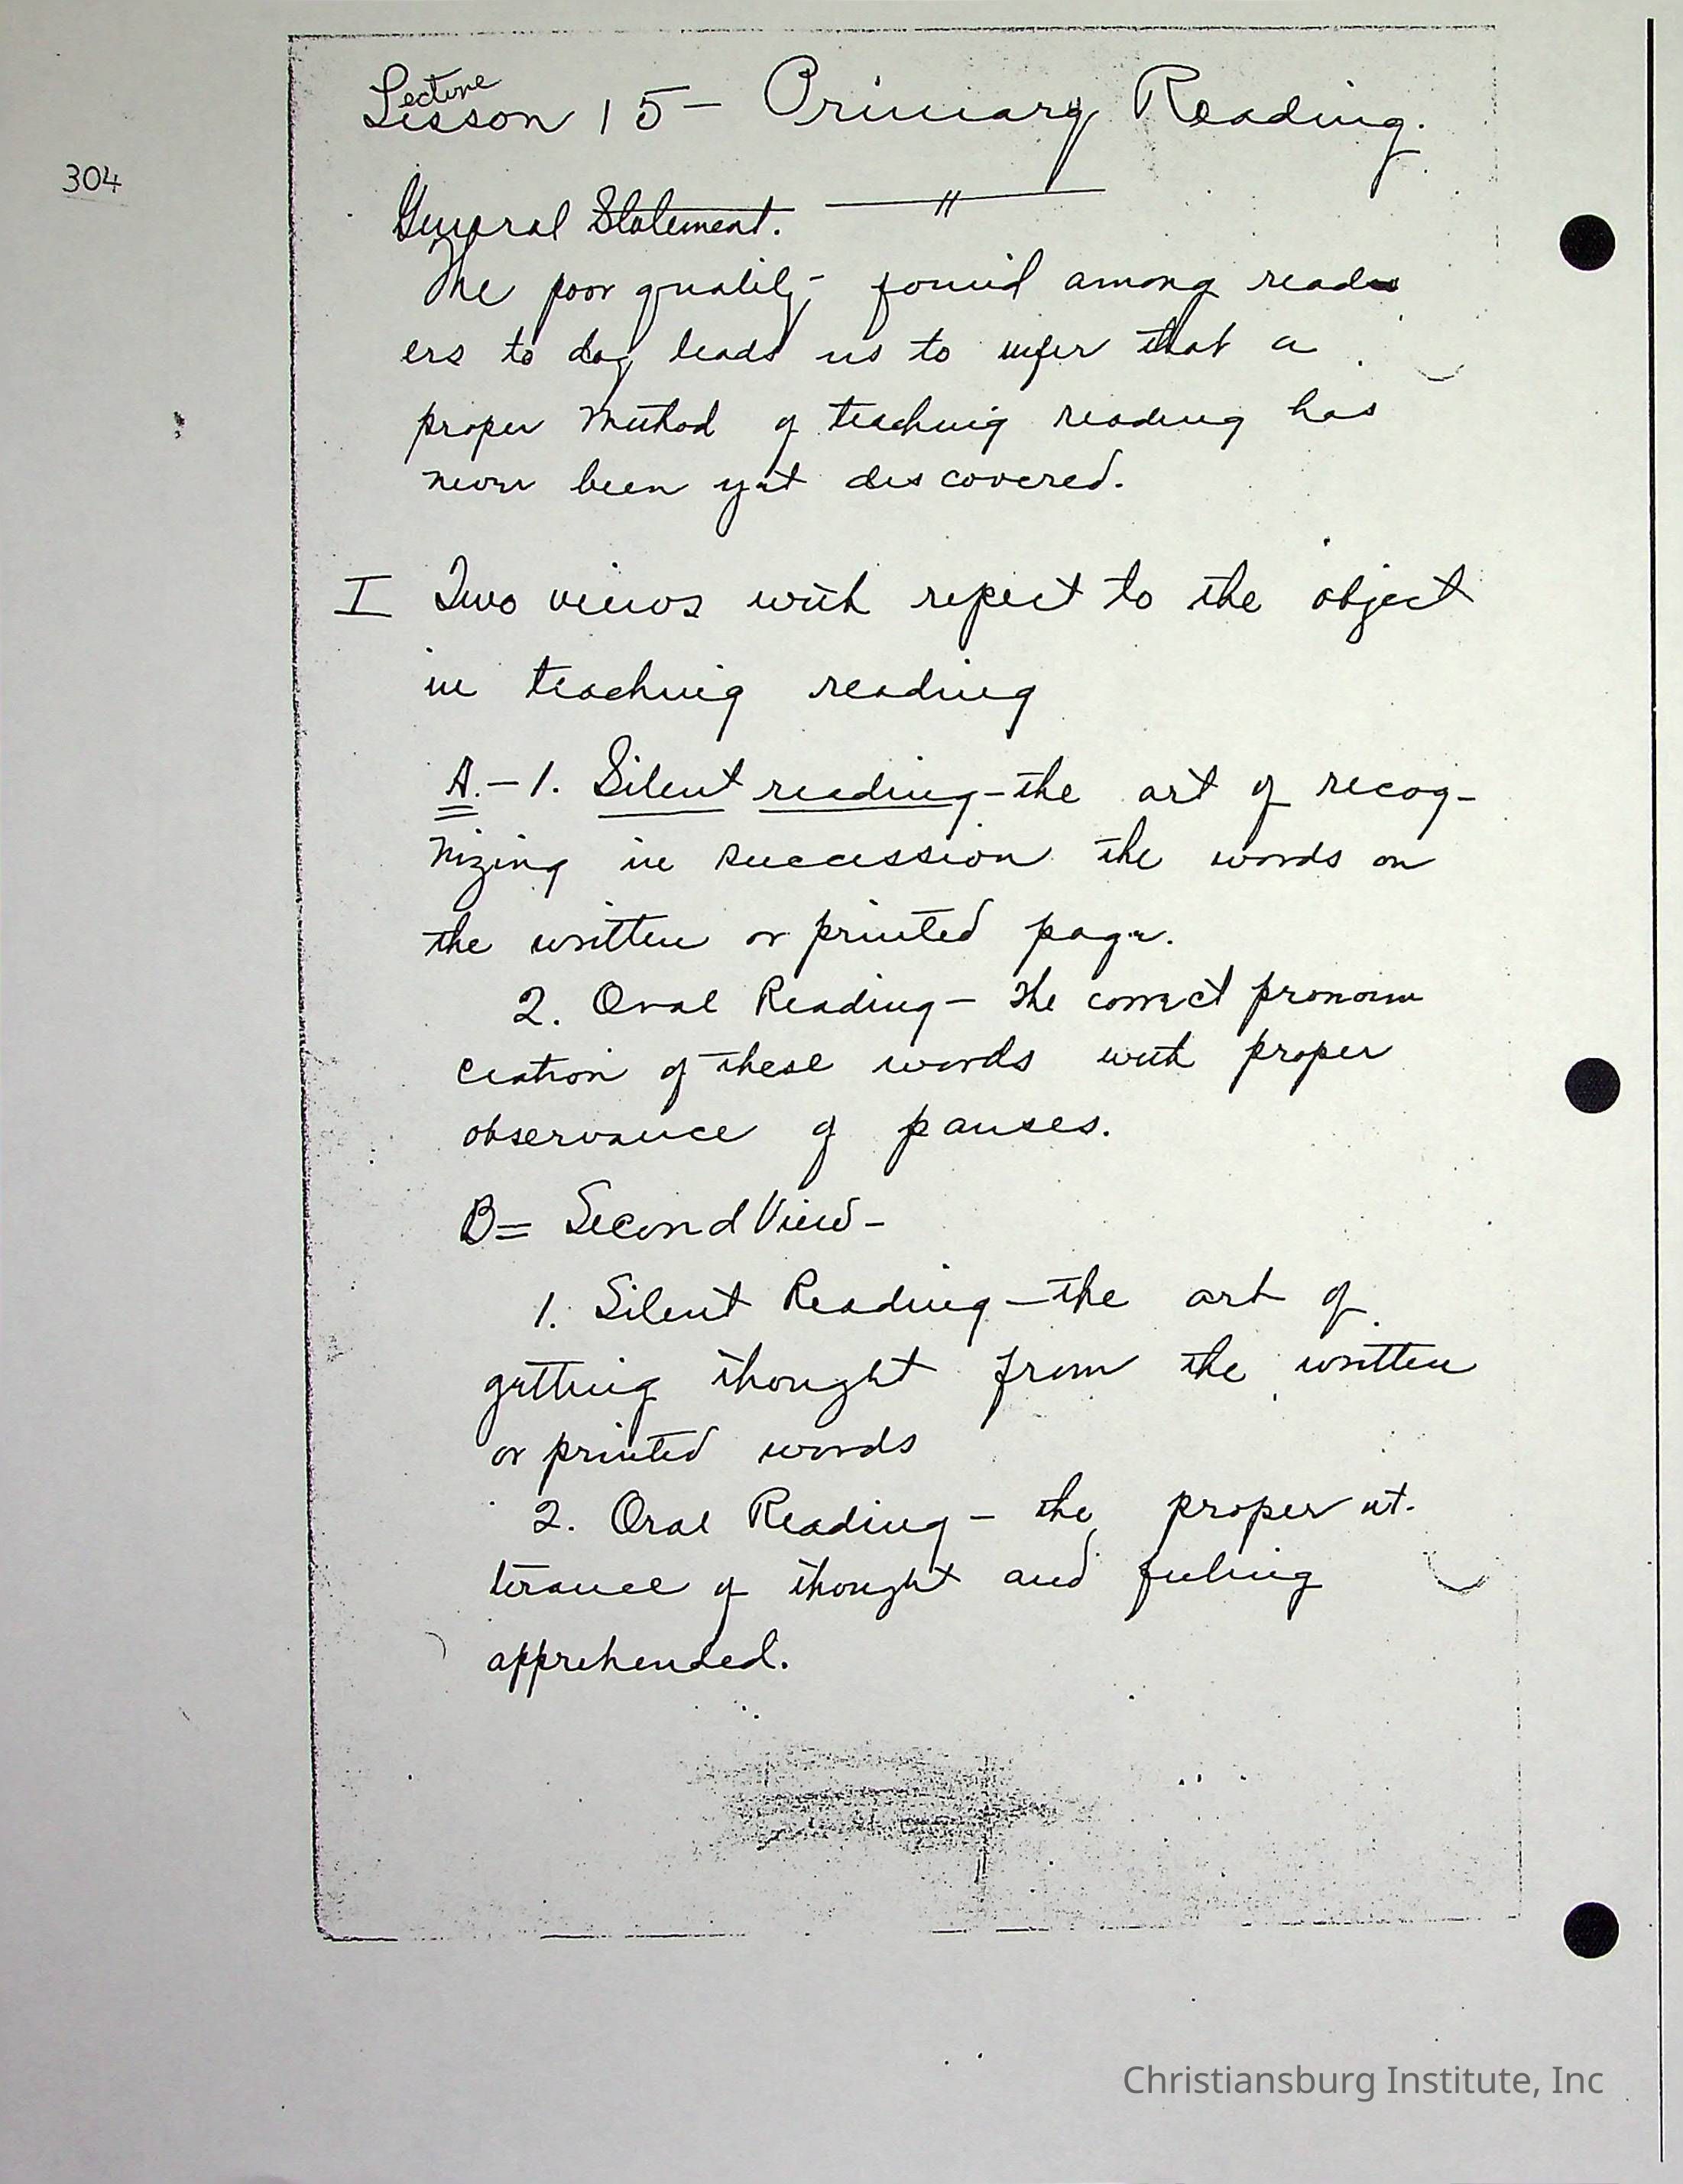 Lecture
Lesson 15 - Primary Reading.
304
General Statement.
The poor quality found among read
ers to day leads us to infer that a
proper method of teaching reading has
never been yet discovered.
I Two views with repect to the object
in teaching reading
A. - 1. Silent reading - the art of recog-
nizing in succession the words on
the written or printed page.
2. Oral Reading - the correct pronoun
ciation of these words with proper
observance of pauses.
B= Second View -
1. Silent Reading - the art of
getting thought from the written
or printed words
2. Oral Reading - the proper ut-
terance of thought and feeling
apprehended.
Christiansburg Institute, Inc